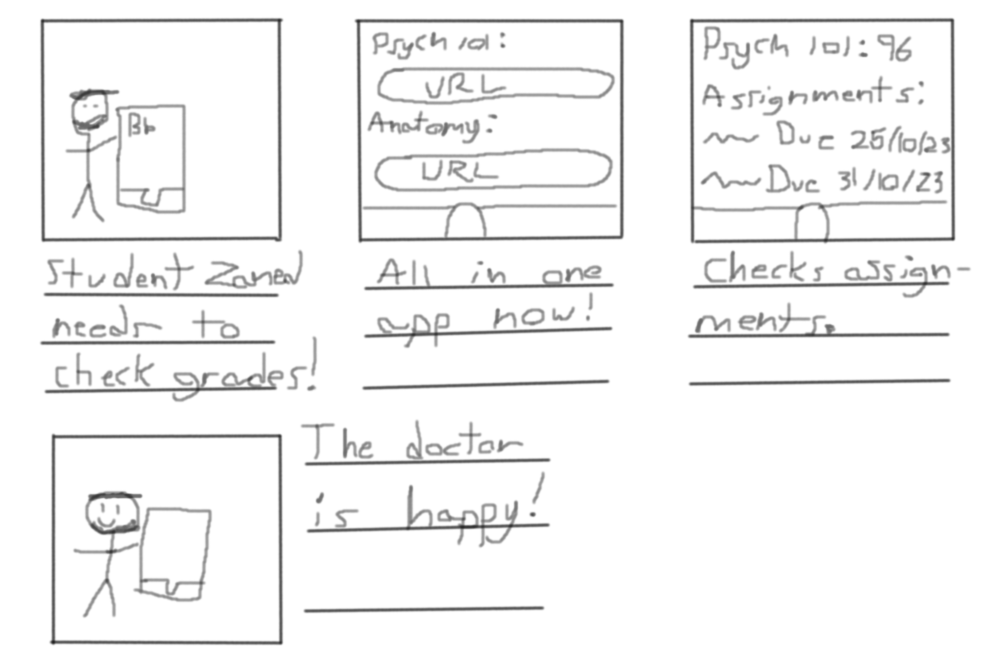 Bb
Student Zaned
needs to
check grades!
Psych 101:
URL
Anatomy:
URL
All in one
app now!
Psych 101: 96
Assignments:
Due 25/10/23
Due 31/10/23
Checks assign-
ments.
The doctor
is happy!